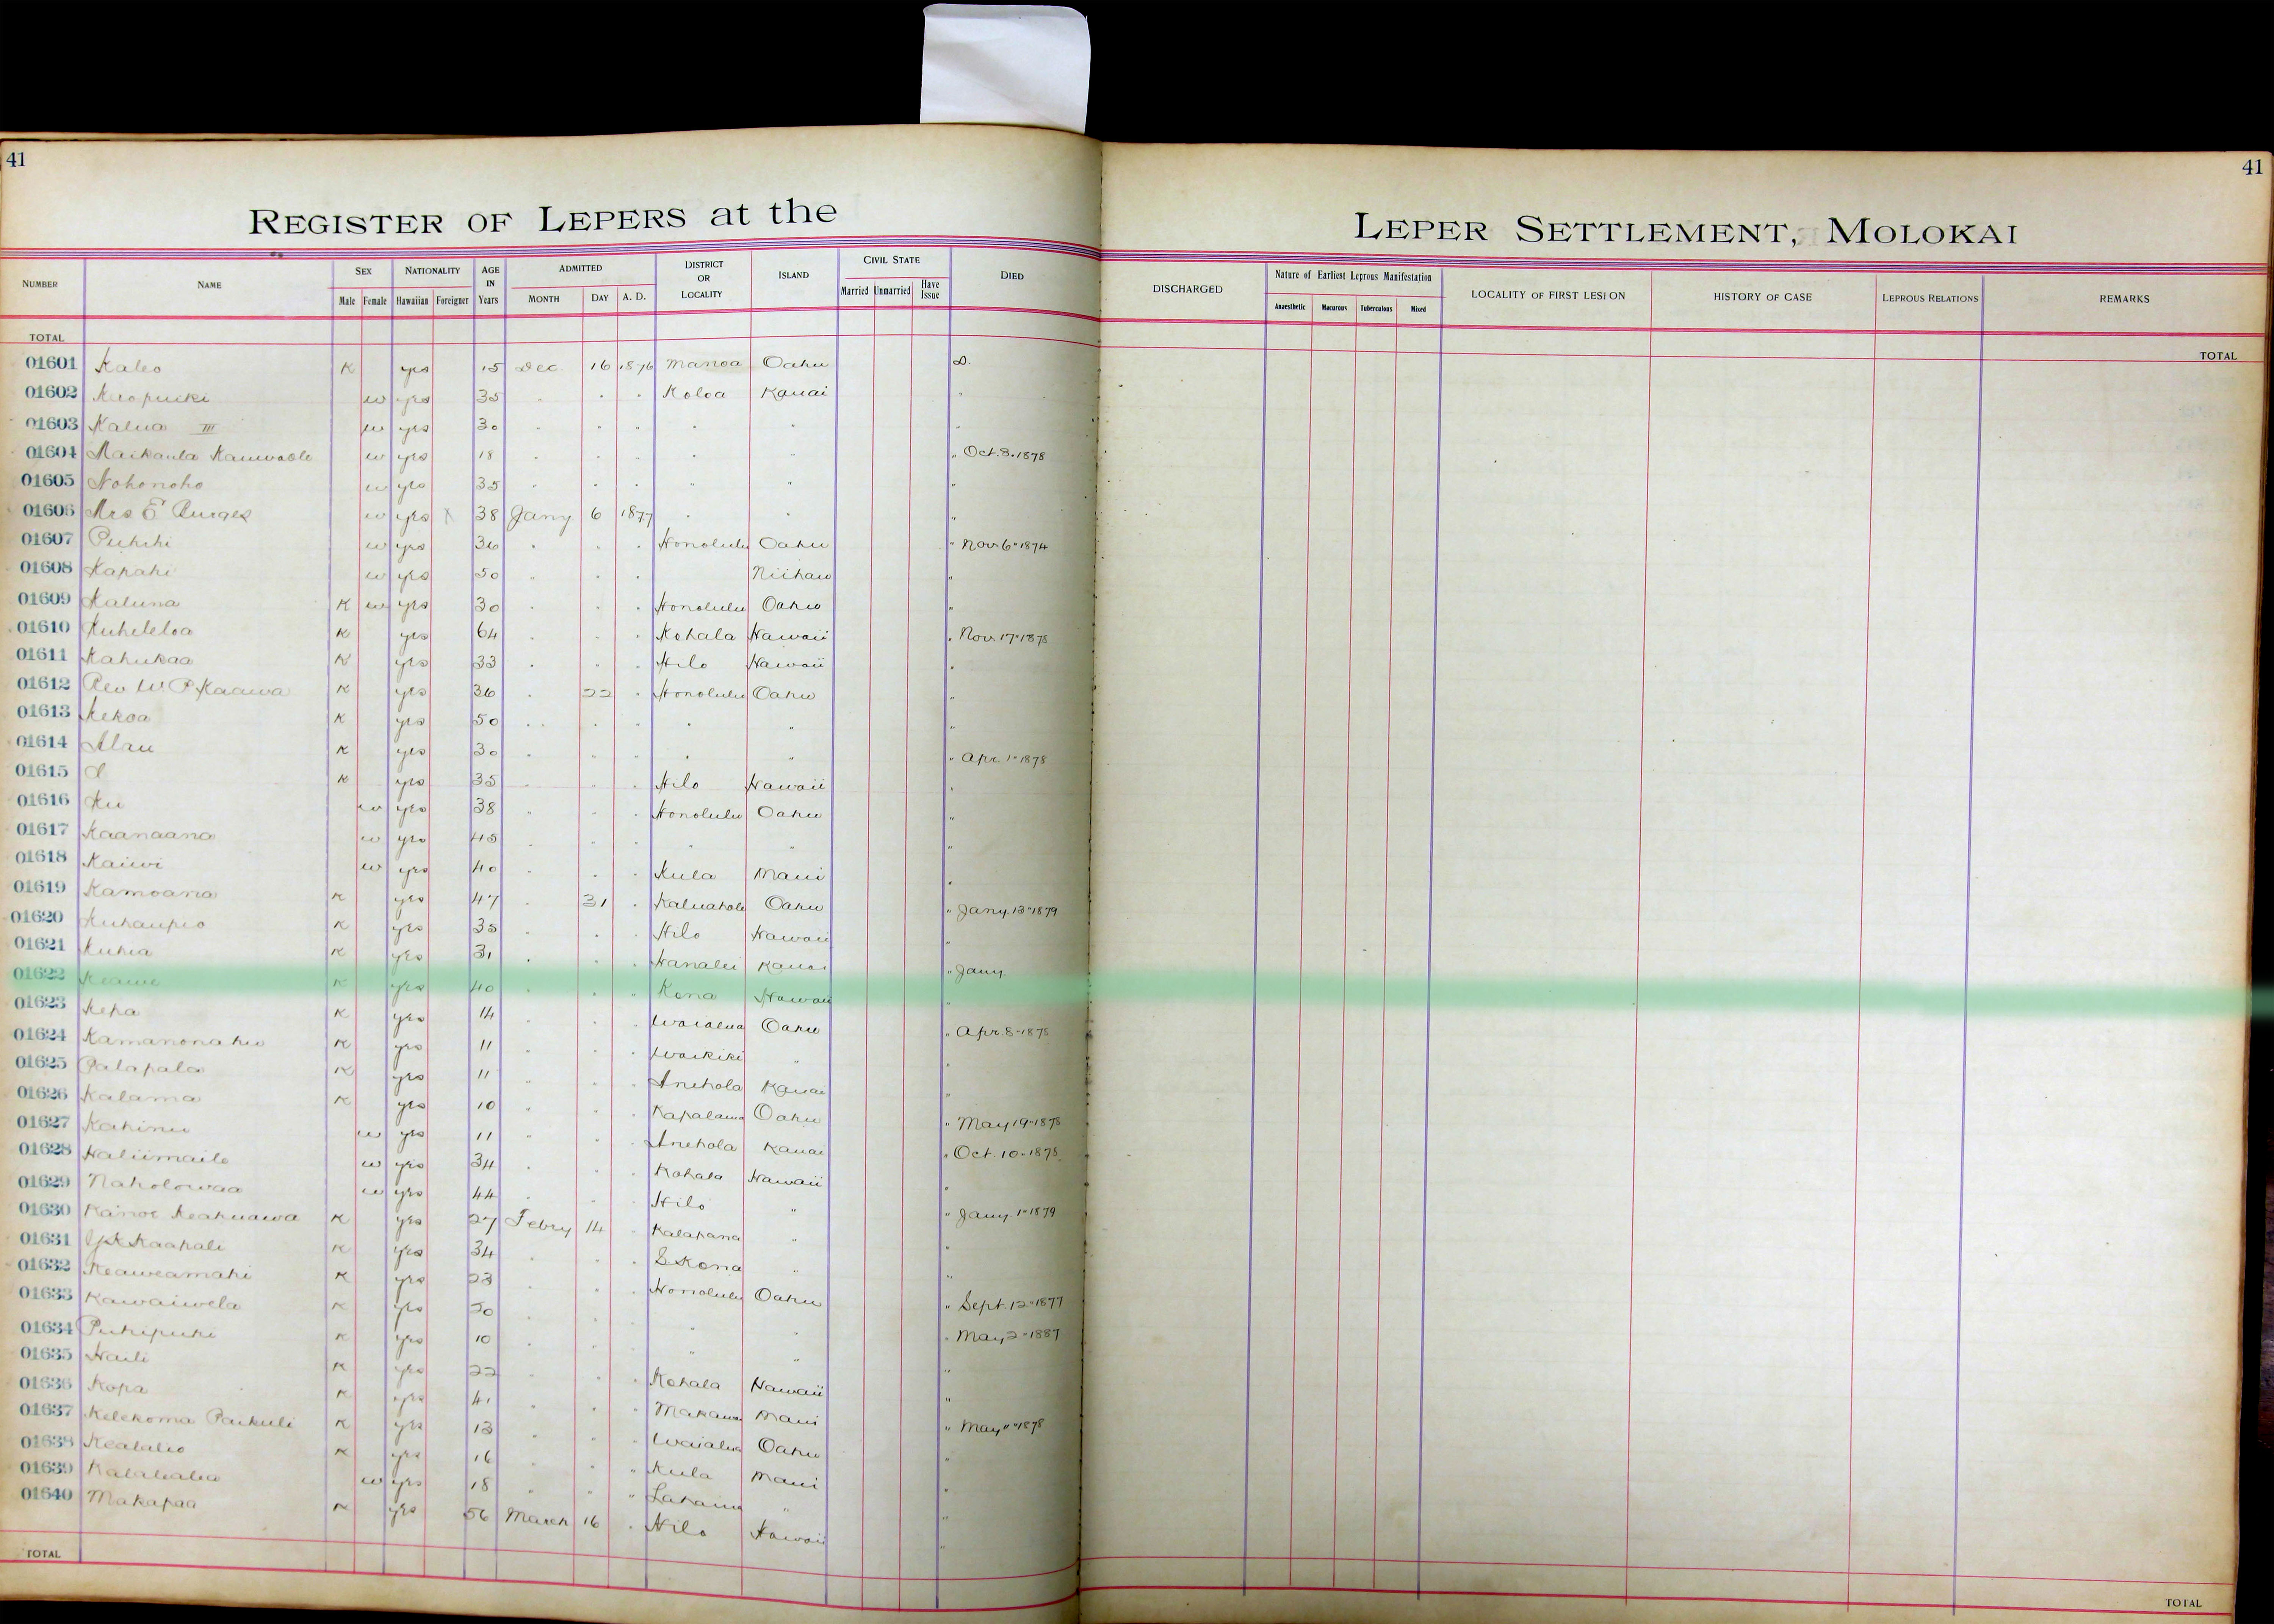 41
41
REGISTER OF LEPERS at the
LEPER SETTLEMENT, MOLOKAI
NUMBER NAME SEX NATIONALITY AGE IN Years ADMITTED DISTRICT OR LOCALITY ISLAND CIVIL STATE DIED DISCHARGED Nature of Earliest Leprous Manifestation LOCALITY OF FIRST LESION HISTORY OF CASE LEPROUS RELATIONS REMARKS
Male Female Hawaiian Foreigner MONTH DAY A. D. Married Unmarried Have Issue Anaesthetic Macurous Tuberculous Mixed
TOTAL TOTAL
01601 Kaleo K yes 15 Dec. 16 1876 Manoa Oahu D.
01602 w yes 35 " " " Koloa Kauai "
01603 Kalua III w yes 30 " " " " " "
01604 Maikaula w yes 18 " " " " " " Oct. 3. 1878
01605 Nohonoho w yes 35 " " " " " "
01606 Mrs E Burges w yes X 38 Jany 6 1877 " " "
01607 Puhihi w yes 36 " " " Honolulu Oahu " Nov. 6 " 1874
01608 Kapahi w yes 50 " " " Niihau "
01609 Kaluna K w yes 30 " " " Honolulu Oahu "
01610 Kuheleloa K yes 64 " " " Kohala Hawaii " Nov. 17 " 1878
01611 Kahukaa K yes 33 " " " Hilo Hawaii "
01612 Rev W. P. Kaawa K yes 36 " 22 " Honolulu Oahu "
01613 Kekoa K yes 50 " " " " " "
01614 Alau K yes 30 " " " " " " Apr. 1 " 1878
01615 K yes 35 " " " Hilo Hawaii "
01616 Ku w yes 38 " " " Honolulu Oahu "
01617 Kaanaana w yes 45 " " " " " "
01618 Kaiwi w yes 40 " " " Kula Maui "
01619 Kamoana K yes 47 " 31 " Oahu " Jany. 13 " 1879
01620 Kuhaupio K yes 35 " " " Hilo Hawaii "
01621 Kuhia K yes 31 " " " Hanalei Kauai " Jany.
01622 Keawe K yes 40 " " " Kona Hawaii "
01623 Kepa K yes 14 " " " Waialua Oahu " Apr. 8 " 1878
01624 Kamanonahu K yes 11 " " " Waikiki " "
01625 Palapala K yes 11 " " " Anehola Kauai "
01626 Kalama K yes 10 " " " Kapalama Oahu " May 19 " 1878
01627 Kahinu w yes 11 " " " Anehola Kauai " Oct. 10 " 1878
01628 Haliimaile w yes 34 " " " Kohala Hawaii "
01629 Naholowaa w yes 44 " " " Hilo " " Jany. 1 " 1879
01630 Kanoe Keakuawa K yes 27 Febry 14 " Kalapana " "
01631 Kaapale K yes 34 " " " S Kona " "
01632 Keaweamahi K yes 23 " " " Honolulu Oahu " Sept. 12 " 1877
01633 Kawaiwela K yes 20 " " " " " " May 2 " 1887
01634 Puhipuhi K yes 10 " " " " " "
01635 Haili K yes 22 " " " Kohala Hawaii "
01636 Kopa K yes 41 " " " Makawao Maui " May 11 " 1878
01637 Kelekoma Paikuli K yes 13 " " " Waialua Oahu "
01638 Kealalio K yes 16 " " " Kula Maui "
01639 w yes 18 " " " Lahaina " "
01640 Makapaa K yes 56 March 16 " Hilo Hawaii "
TOTAL TOTAL